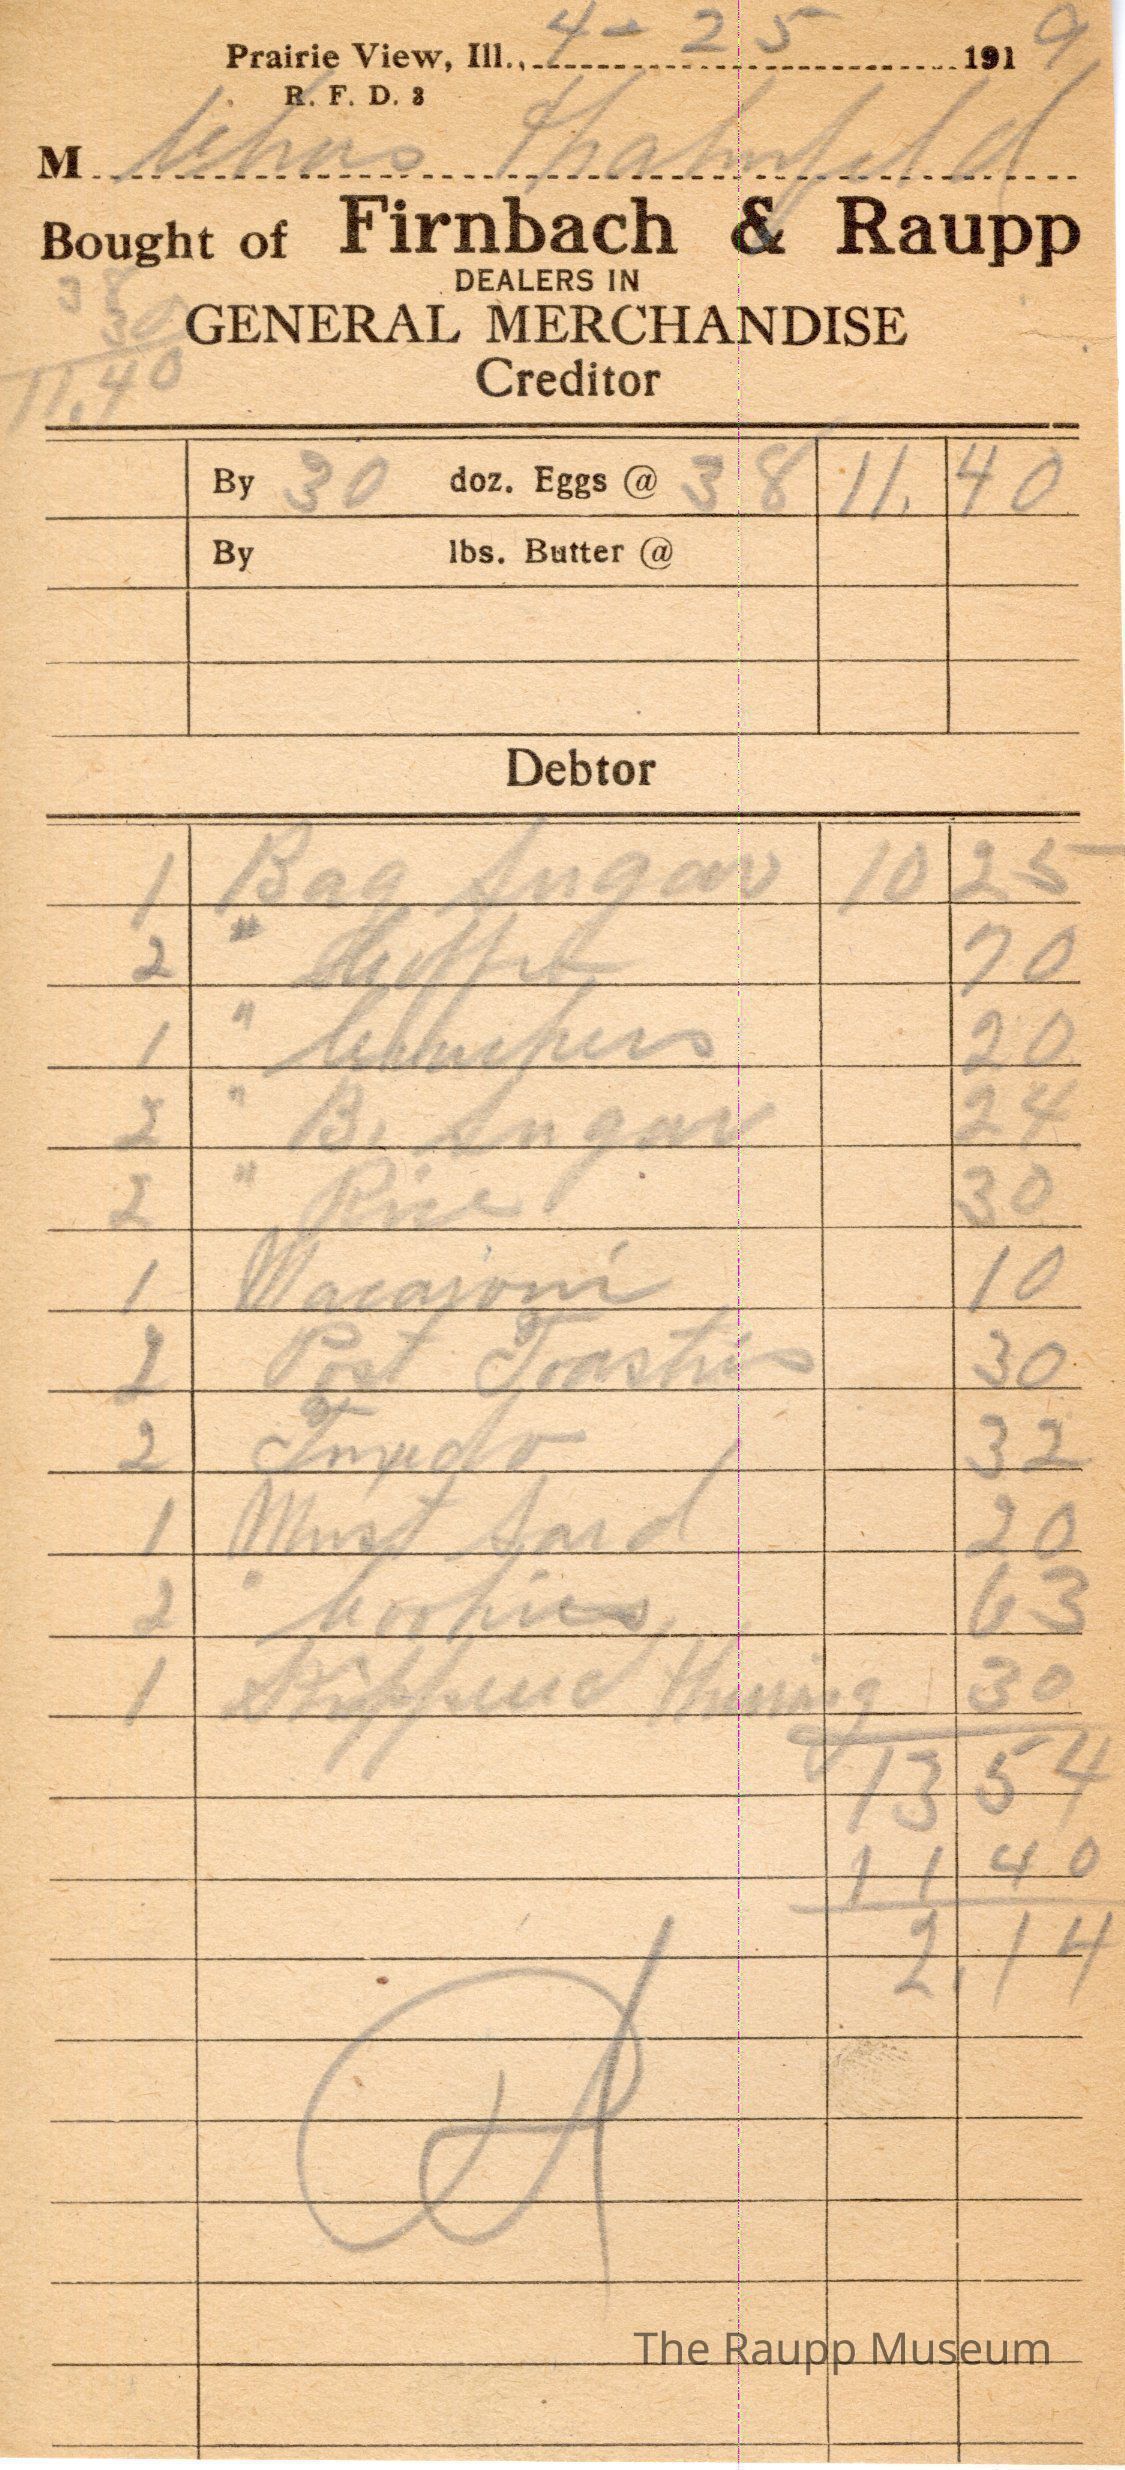 Prairie View, Ill., 4-25 1919
R. F. D. 3
M Chas
Bought of Firnbach & Raupp
DEALERS IN
GENERAL MERCHANDISE
Creditor
38
30
11,40
By 30 doz. Eggs @ 38 11. 40
By lbs. Butter @
Debtor
1 Bag Sugar 10 25
2 " Coffee 70
1 " 20
2 " B. Sugar 24
2 " Rice 30
1 Macaroni 10
2 Post Toasties 30
2 32
1 Must Sard 20
2 " Cookies 63
1 Herring 30
13 54
11 40
2.14
The Raupp Museum